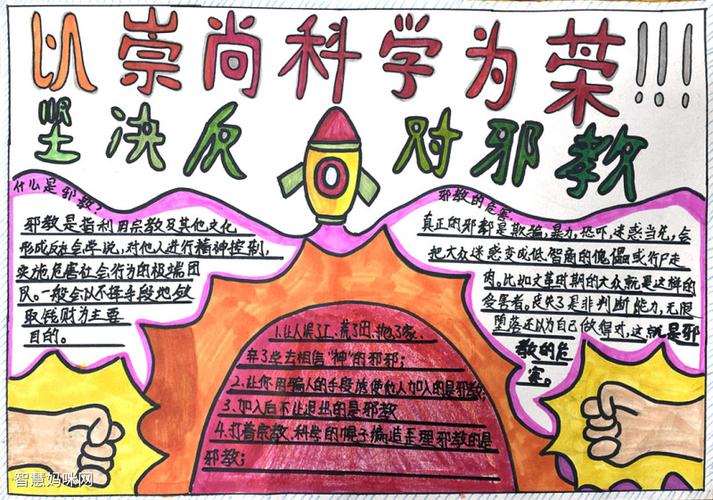 以崇尚科学为荣!!!
坚决反对邪教
什么是邪教?
邪教是指利用宗教及其他文化
形成反社会学说,对他人进行精神控制,
实施危害社会行为的极端团
队。一般会以不择手段地敛
取钱财为主要
目的。
邪教的危害:
真正的邪都是欺骗,暴力,恐吓,迷惑当先,会
把大众迷惑变成低智商的傀儡或行尸走
肉。比如文革时期的大众就是这样的
受害者。丧失了是非判断能力,无限
堕落还以为自己做得对,这就是邪
教的危
害。
1.让人误了工、荒了田、抛了家、
弃了些去相信"神"的邪邪;
2.让你用骗人的手段 使他人加入的是邪教;
3.加入后不让退出的是邪教
4.打着宗教、科学的幌子编造歪理邪教的是
邪教;
智慧妈咪网